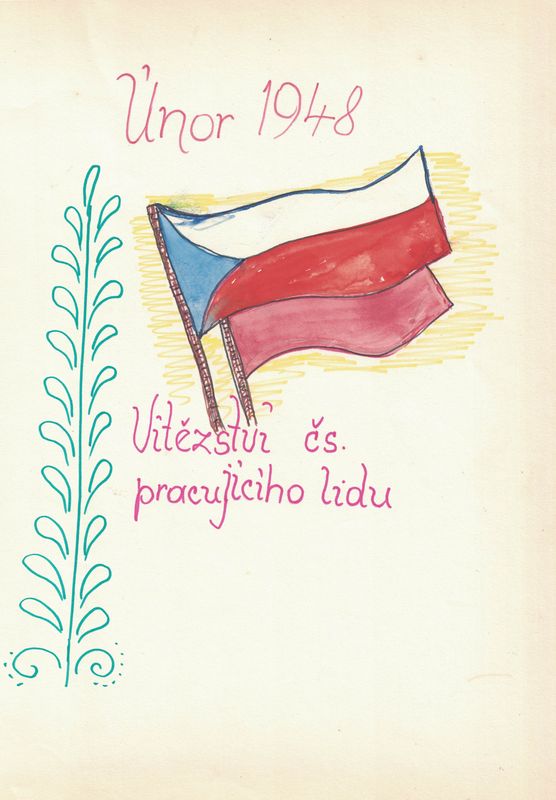 Únor 1948
Vítězství čs.
pracujícího lidu